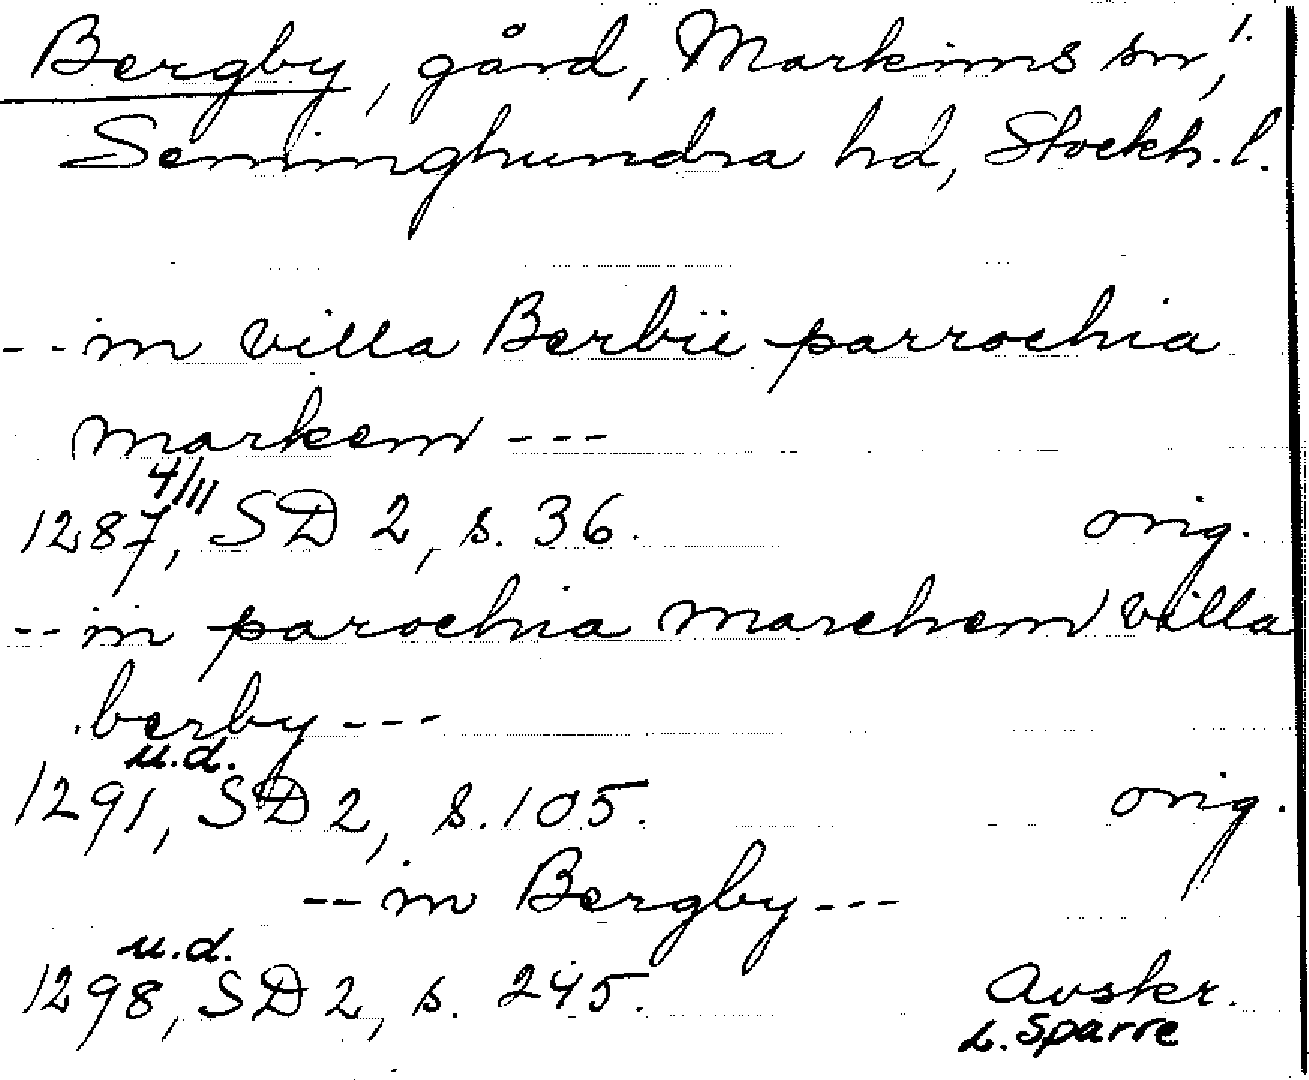 Bergby, gård, Markims sn, 1.
Seminghundra hd, Stockh. l.
-- in villa Berbii parrochia
markem ---
4/11
1287, SD 2, s. 36. orig.
-- in parochia marchem villa
berby ---
u.d.
1291, SD 2, s. 105. orig.
-- in Bergby ---
u.d.
1298, SD 2, s. 245. Avskr.
L. Sparre